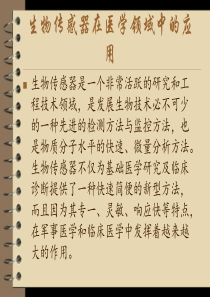 生物传感器在医学领域中的应
用
生物传感器是一个非常活跃的研究和工
程技术领域，是发展生物技术必不可少
的一种先进的检测方法与监控方法，也
是物质分子水平的快速、微量分析方法。
生物传感器不仅为基础医学研究及临床
诊断提供了一种快速简便的新型方法，
而且因为其专一、灵敏、响应快等特点，
在军事医学和临床医学中发挥着越来越
大的作用。